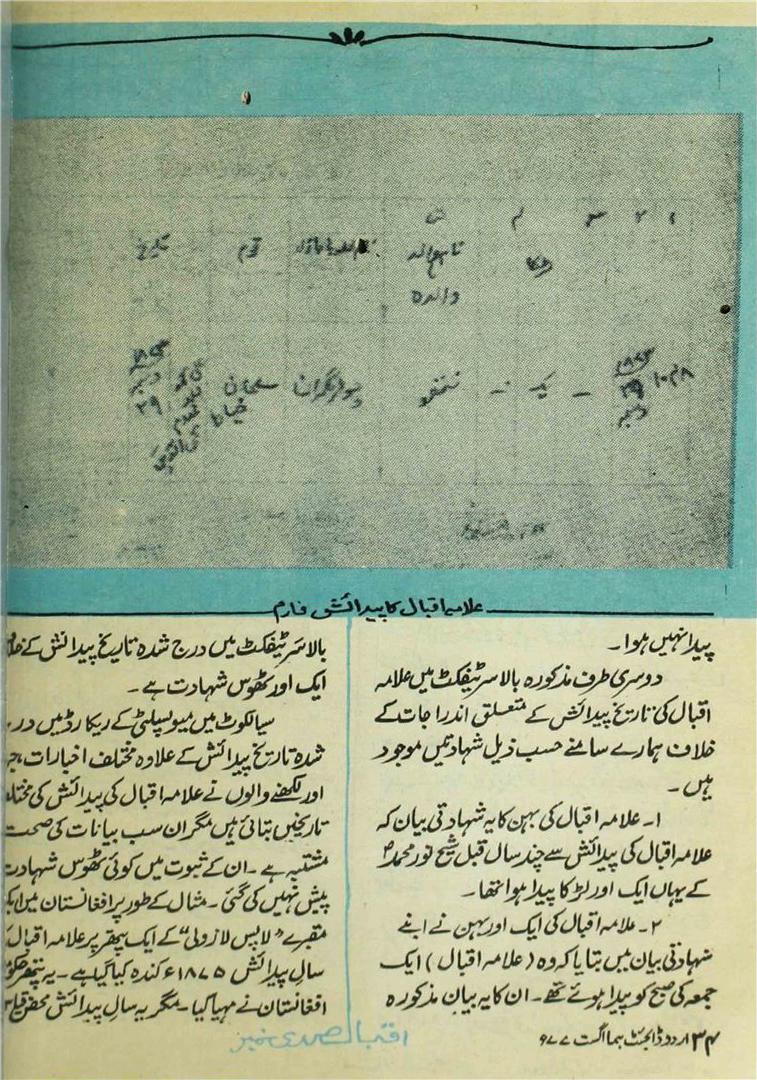 ۱ ۲ ۳ ۴ ۵
لڑکا
نام والد
والدہ
قوم
تاریخ
۱۰۴۸
۲۹
دسمبر
–
یک
–
نتھو
چوڑیگران
مسلمان
خیاط
۲۹
علامہ اقبال کا پیدائشی فارم
پیدا نہیں ہوا۔
دوسری طرف مذکورہ بالا سرٹیفکٹ میں علامہ
اقبال کی تاریخ پیدائش کے متعلق اندراجات کے
خلاف ہمارے سامنے حسب ذیل شہادتیں موجود
ہیں۔
۱۔ علامہ اقبال کی بہن کا یہ شہادتی بیان کہ
علامہ اقبال کی پیدائش سے چند سال قبل شیخ نور محمدؒ
کے یہاں ایک اور لڑکا پیدا ہوا تھا۔
۲۔ علامہ اقبال کی ایک اور بہن نے اپنے
شہادتی بیان میں بتایا کہ وہ (علامہ اقبال) ایک
جمعہ کی صبح کو پیدا ہوئے تھے۔ ان کا یہ بیان مذکورہ
بالا سرٹیفکٹ میں درج شدہ تاریخ پیدائش کے
ایک اور ٹھوس شہادت ہے۔
سیالکوٹ میں میونسپلٹی کے ریکارڈ میں در
شدہ تاریخ پیدائش کے علاوہ مختلف اخبارات،
اور لکھنے والوں نے علامہ اقبال کی پیدائش کی
تاریخیں بتائی ہیں مگر ان سب بیانات کی صحت
مشتبہ ہے۔ ان کے ثبوت میں کوئی ٹھوس شہادت
پیش نہیں کی گئی۔ مثال کے طور پر افغانستان میں
مقبرے "لاپس لازولی" کے ایک پتھر پر علامہ اقبال
سال پیدائش ۱۸۷۵ء کندہ کیا گیا ہے۔ یہ پتھر
افغانستان نے مہیا کیا۔ مگر یہ سال پیدائش محض
۳۴ اردو ڈائجسٹ ہما اگست ۷۷ء
اقبال صدی نمبر